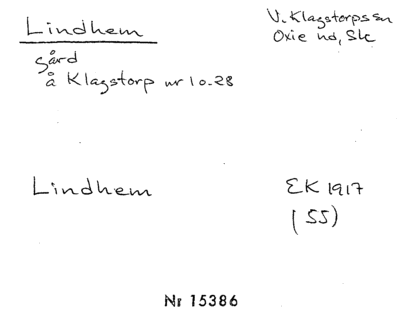 Lindhem
V. Klagstorps sn
Oxie hd, Sk
gård
å Klagstorp nr 10.28
Lindhem
EK 1917
(55)
Nr 15386